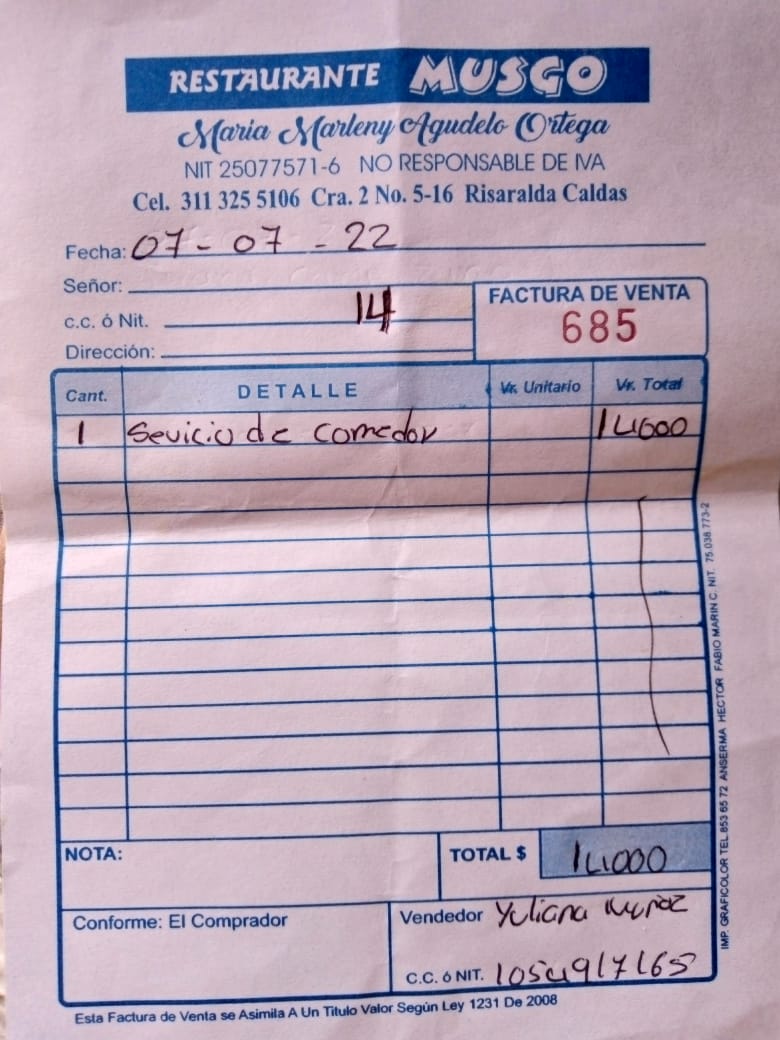 RESTAURANTE MUSGO
Maria Marleny Agudelo Ortega
NIT 25077571-6 NO RESPONSABLE DE IVA
Cel. 311 325 5106 Cra. 2 No. 5-16 Risaralda Caldas
Fecha: 07-07-22
Señor:
c.c. ó Nit. 14
Dirección:
FACTURA DE VENTA
685
Cant. DETALLE Vr. Unitario Vr. Total
1 Sevicio de comedor 14000
NOTA:
TOTAL $ 14000
Conforme: El Comprador
Vendedor Yuliana Muñoz
C.C. ó NIT. 1054917165
Esta Factura de Venta se Asimila A Un Titulo Valor Según Ley 1231 De 2008
IMP. GRAFICOLOR TEL.853 65 72 ANSERMA HECTOR FABIO MARIN C. NIT. 75.038.773-2